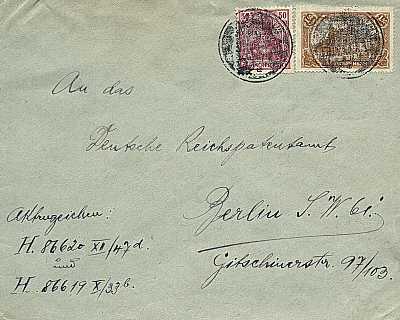 50 50
An das
Deutsche Reichspatentamt
Berlin S. W. 61.
Gitschinerstr. 97/103.
Aktenzeichen:
H. 86620 XII/47d.
und
H. 86619 X/33b.